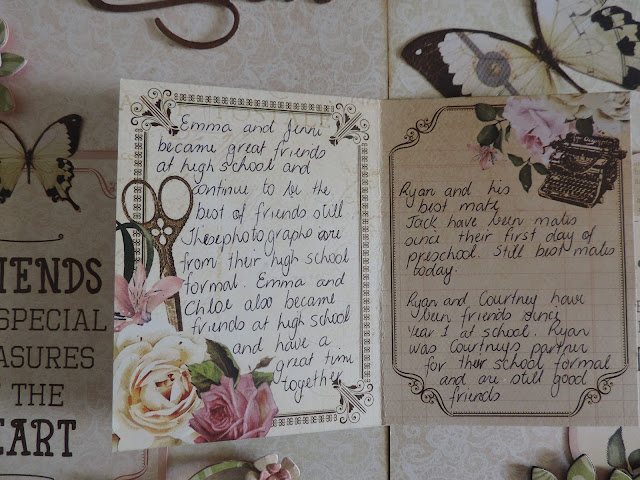 Emma and Jenni
became great friends
at high school and
continue to be the
best of friends still.
These photographs are
from their high school
formal. Emma and
Chloe also became
friends at high school
and have a
great time
together
Ryan and his
best mate
Jack have been mates
since their first day of
preschool. Still best mates
today.
Ryan and Courtney have
been friends since
Year 1 at school. Ryan
was Courtneys partner
for their school formal
and are still good
friends
IENDS
SPECIAL
ASURES
THE
EART